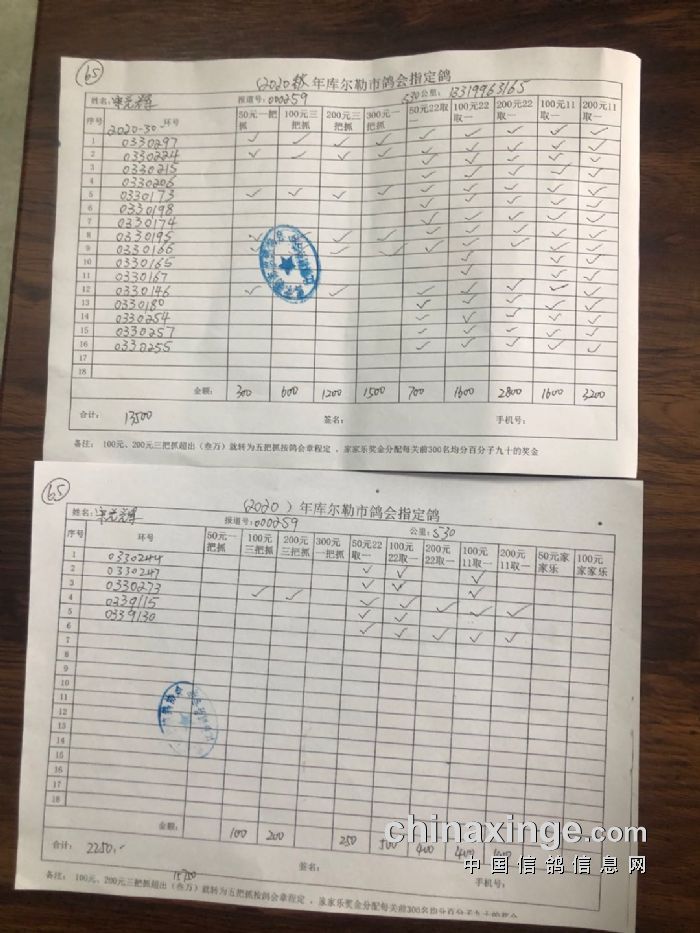 65
(2020秋年库尔勒市鸽会指定鸽
姓名: 报道号: 000259 530公里: 13319963165
序号 环号 50元一把抓 100元三把抓 200元三把抓 300元一把抓 50元22取一 100元22取一 200元22取一 100元11取一 200元11取一
2020-30-
1 0330297 ✓ ✓ ✓ ✓ ✓ ✓ ✓ ✓ ✓
2 0330224
3 0330215
4 0330206
5 0330173
6 0330198
7 0330174
8 0330195
9 0330166
10 0330165
11 0330167
12 0330146
13 0330180
14 0330254
15 0330257
16 0330255
17
18
金额: 300 600 1200 1500 700 1600 2800 1600 3200
合计: 13500 签名: 手机号:
备注: 100元、200元三把抓超出(叁万)就转为五把抓按鸽会章程定,家家乐奖金分配每关前300名均分百分子九十的奖金
65
(2020 )年库尔勒市鸽会指定鸽
姓名: 报道号: 000259 公里: 530
序号 环号 50元一把抓 100元三把抓 200元三把抓 300元一把抓 50元22取一 100元22取一 200元22取一 100元11取一 200元11取一 50元家家乐 100元家家乐
1 0330244
2 0330247
3 0330273
4 0339115
5 0339130
6
7
8
9
10
11
12
13
14
15
16
17
18
金额: 100 200 250 500 400 400 400
合计: 2250.- 签名: 手机号:
15750
备注: 100元、200元三把抓超出(叁万)就转为五把抓按鸽会章程定,家家乐奖金分配每关前300名均分百分子九十的奖金
chinaxinge.com
中国信鸽信息网